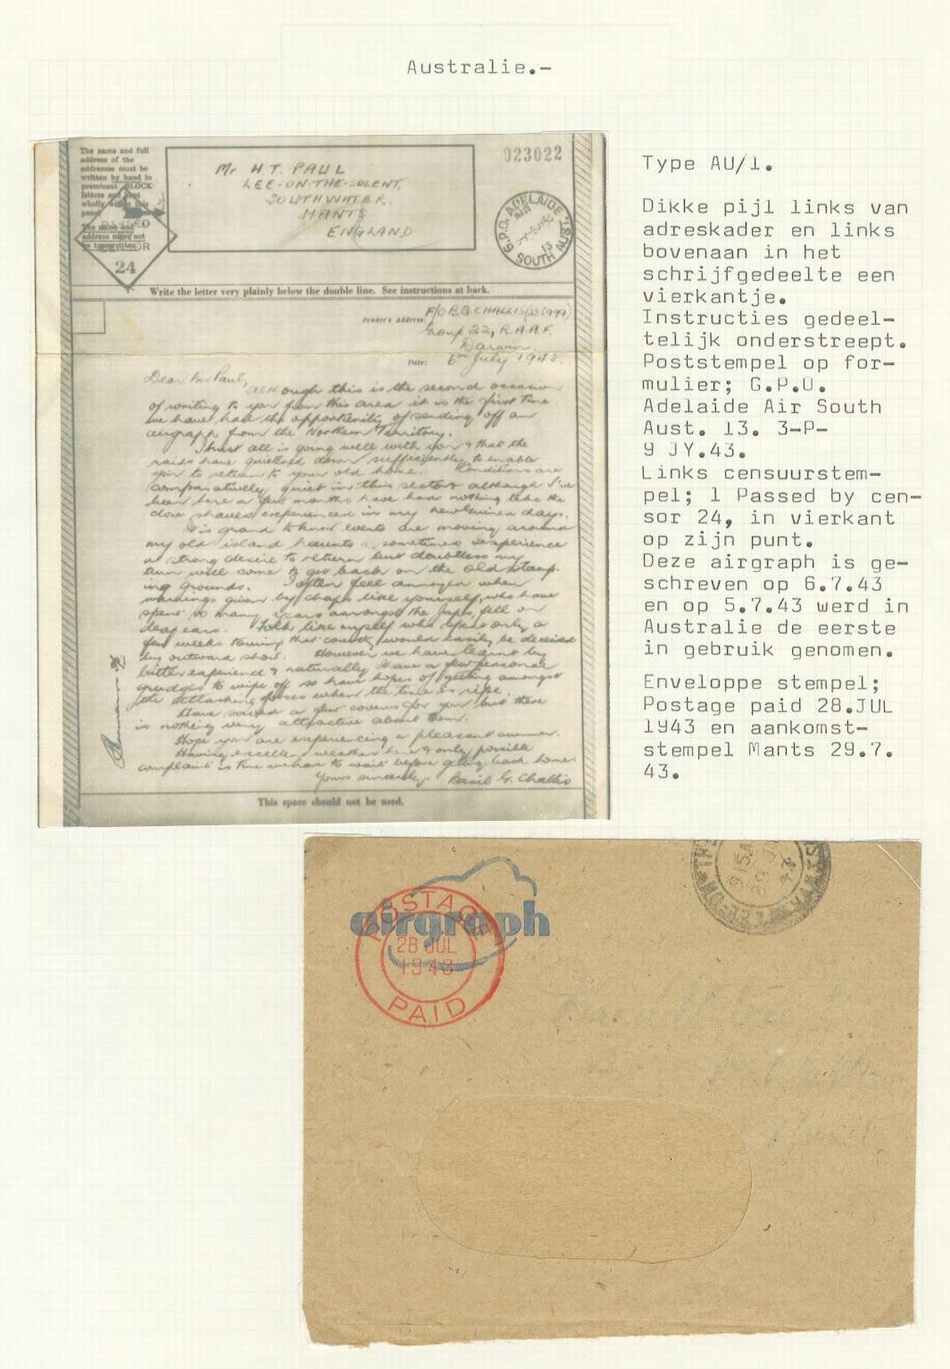 Australie.-
The name and full
address of the
addressee must be
written by hand in
BLOCK
letters
wholly within this
panel
The name and
address must not
be typewritten
PASSED
CENSOR
24
Mr H T. PAUL
LEE-ON-THE-SOLENT,
SOUTHWATER.
HANTS
ENGLAND
023022
G.P.O. ADELAIDE
AIR
13
SOUTH AUST.
Write the letter very plainly below the double line. See instructions at back.
Sender's Address:
F/O B.G. CHALLIS
Group 22, R.A.A.F.
Darwin.
Date: 6th July 1943.
Dear Mr Paul,
Although this is the second occasion
of writing to you from this area it is the first time
we have had the opportunity of sending off an
airgraph from the Northern Territory.
Trust all is going well with you & that the
raids have quietened down sufficiently to enable
you to return to your old home. Conditions are
comparatively quiet in this sector although I've
been here a few months have had nothing like the
close shaves experienced in my New Guinea days.
It is grand to know events are moving around
my old island haunts & sometimes experience
a strong desire to return but doubtless my
turn will come to get back on the old stamp-
ing grounds. I often feel annoyed when
warnings given by chaps like yourself, who have
spent so many years amongst the Japs, fell on
deaf ears. Folk like myself who spent only a
few weeks touring that country would easily be deceived
by outward show. However we have learnt by
bitter experience & naturally I have a few personal
grudges to wipe off so have hopes of getting amongst
the attacking forces when the time is ripe.
Have saved a few covers for you but there
is nothing very attractive about them.
Hope you are experiencing a pleasant summer.
Having excellent weather here & only possible
complaint is time we have to wait before going back home.
Yours sincerely, Basil G. Challis
This space should not be used.
Type AU/1.
Dikke pijl links van
adreskader en links
bovenaan in het
schrijfgedeelte een
vierkantje.
Instructies gedeel-
telijk onderstreept.
Poststempel op for-
mulier; G.P.O.
Adelaide Air South
Aust. 13. 3-P-
9 JY.43.
Links censuurstem-
pel; 1 Passed by cen-
sor 24, in vierkant
op zijn punt.
Deze airgraph is ge-
schreven op 6.7.43
en op 5.7.43 werd in
Australie de eerste
in gebruik genomen.
Enveloppe stempel;
Postage paid 28.JUL
1943 en aankomst-
stempel Hants 29.7.
43.
airgraph
POSTAGE
28 JUL
1943
PAID
HANTS